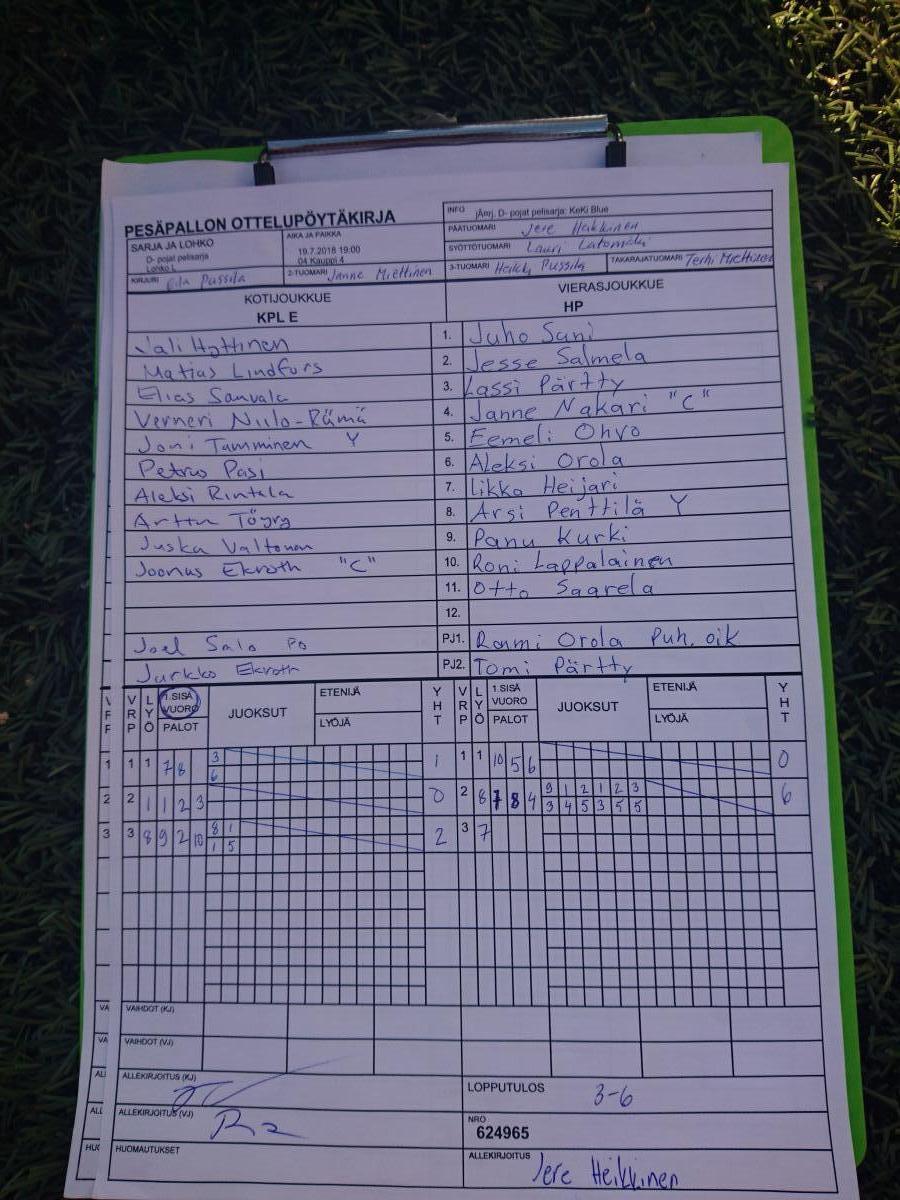 PESÄPALLON OTTELUPÖYTÄKIRJA
INFO jÄrrj. D- pojat pelisarja: KeKi Blue
PÄÄTUOMARI Jere Hakkinen
SARJA JA LOHKO
D- pojat pelisarja
Lohko L
AIKA JA PAIKKA
19.7.2018 19:00
04 Kauppi 4
SYÖTTÖTUOMARI Lauri
KIRJURI Eila Pussila
2-TUOMARI Janne Miettinen
3-TUOMARI Heikki Pussila
TAKARAJATUOMARI Terhi Miettinen
KOTIJOUKKUE
KPL E
VIERASJOUKKUE
HP
Vali Hyttinen 1. Juho Sani
Matias Lindfors 2. Jesse Salmela
Elias Sauvala 3. Lassi Pärtty
Verneri Niilo-Rämä 4. Janne Nakari "C"
Joni Tamminen Y 5. Eemeli Ohvo
Petrus Pasi 6. Aleksi Orola
Aleksi Rintala 7. Iikka Heijari
Arttu Töyry 8. Arsi Penttilä Y
Juska Valtonen 9. Panu Kurki
Joonas Ekroth "C" 10. Roni Lappalainen
11. Otto Saarela
12.
Joel Salo PO PJ1. Rami Orola Puh. oik
Jurkko Ekroth PJ2. Tomi Pärtty
VRP LYÖ 1.SISÄ VUORO PALOT JUOKSUT ETENIJÄ LYÖJÄ YHT VRP LYÖ 1.SISÄ VUORO PALOT JUOKSUT ETENIJÄ LYÖJÄ YHT
1 1 1 7 8 3 1 1 1 10 5 6 0
6
2 2 1 1 2 3 0 2 8 7 8 4 9 1 2 1 2 3 6
3 4 5 3 5 5
3 3 8 9 2 10 8 1 2 3 7
1 5
VAIHDOT (KJ)
VAIHDOT (VJ)
ALLEKIRJOITUS (KJ)
LOPPUTULOS 3-6
ALLEKIRJOITUS (VJ)
NRO
624965
HUOMAUTUKSET
ALLEKIRJOITUS Jere Heikkinen